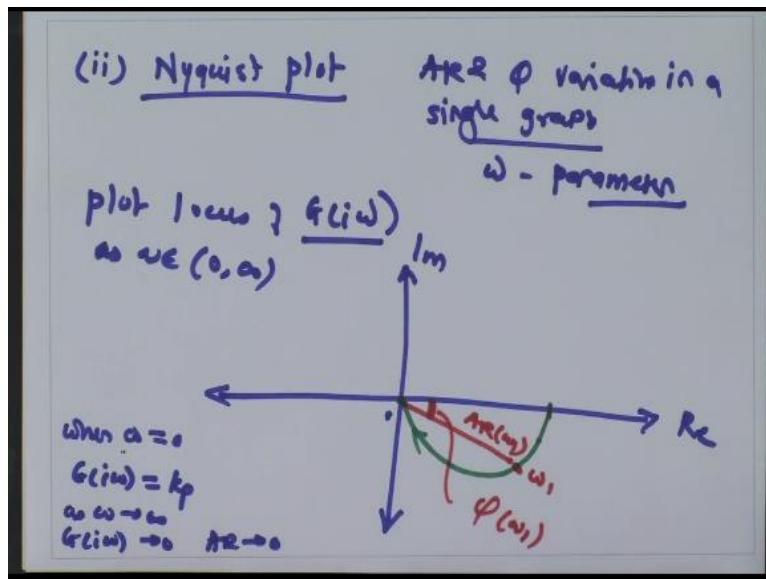 (ii) Nyquist plot
AR & φ variation in a
single graph
ω - parameter
plot locus of G(iω)
as ω∈ (0, ∞)
Im
Re
AR(ω₁)
ω₁
φ(ω₁)
when ω = 0
G(iω) = kp
as ω → ∞
G(iω) → 0 AR → 0